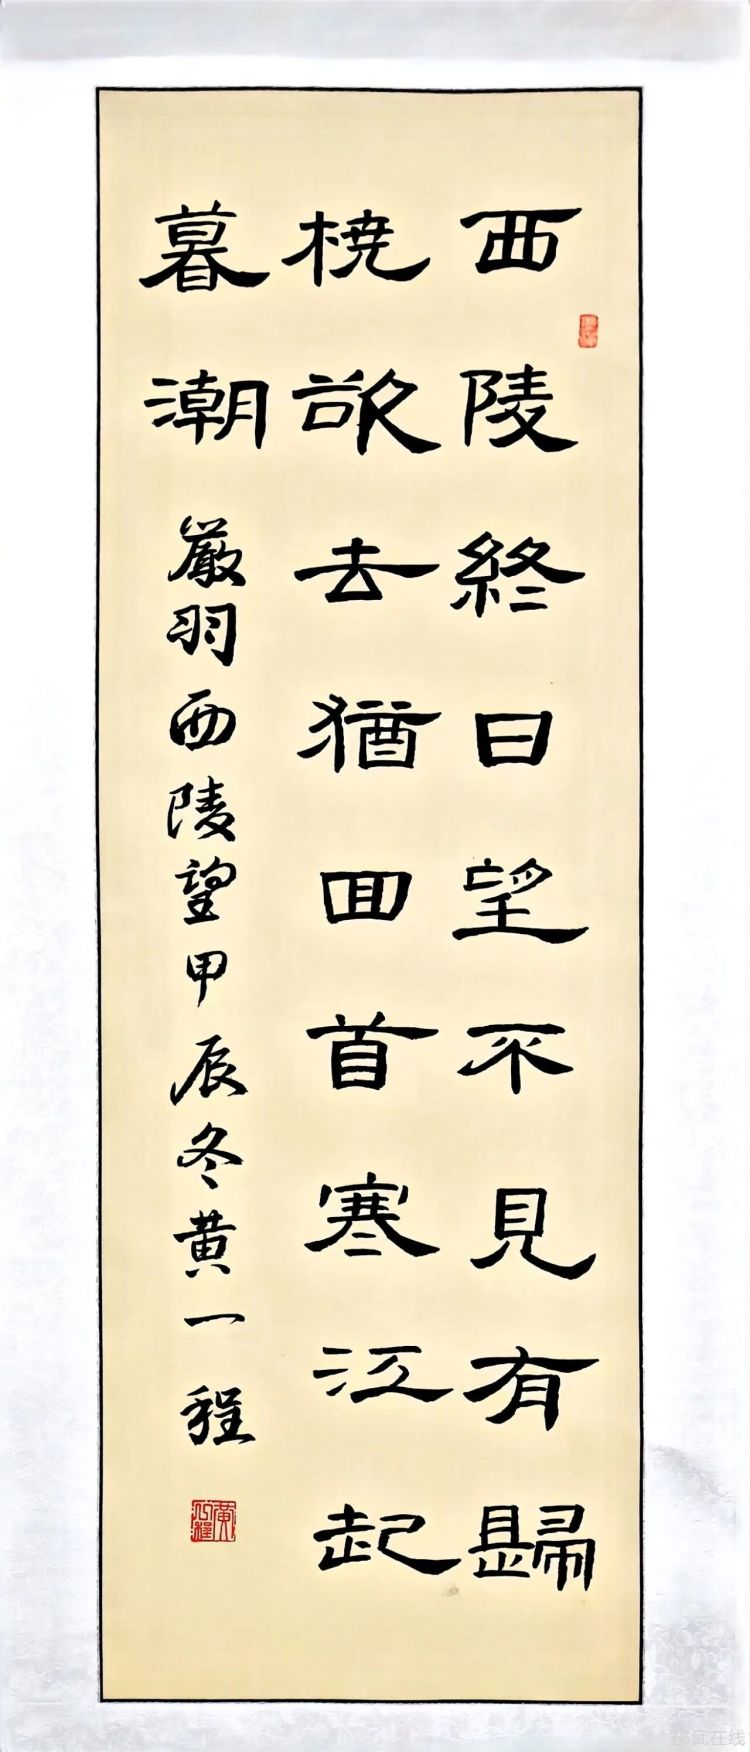 西陵終日望不見有歸
橈欲去猶回首寒江起
暮潮
嚴羽西陵望甲辰冬黄一程
邵武在线